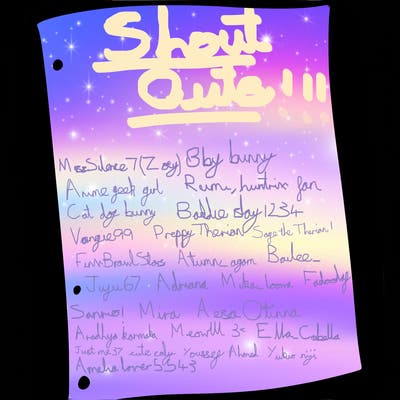 Shout
Outs!!!
MissSilence7(Zoey) Bby bunny
Anime geek girl Rumi_huntrix fan
Cat dog bunny Baddie day1234
Vangue99 Preppy Therian Sage the Therian!
Finn Brawl Stars Atumn_again Bailee_
Juju67 Adriana Mika loona
Sanmo1 Mira Aesa Otinna
Aradhya karmata Meowlll 3< Ella Cabella
Just me37 cute caly Youssef Ahmed Yukio niji
Amelia lover5543